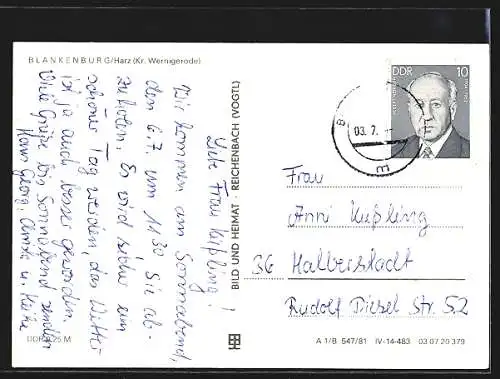 BLANKENBURG/Harz (Kr. Wernigerode)
Liebe Frau Kußling!
Wir kommen am Sonnabend,
den 6.7. um 11.30, Sie ab-
zuholen. Es wird sicher ein
schöner Tag werden, das Wetter
ist ja auch besser geworden.
Viele Grüße bis Sonnabend senden
Hans Georg, u.
DDR 0,25 M
BILD UND HEIMAT REICHENBACH (VOGTL)
DDR 10
03.7.
Frau
Anni Kußling
36 Halberstadt
Rudolf Diesel Str. 52
A 1/B 547/81 IV-14-483 03 07 20 379